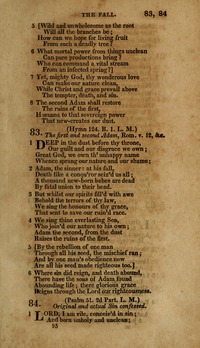 THE FALL. 83, 84
5 [Wild and unwholesome as the root
Will all the branches be;
How can we hope for living fruit
From such a deadly tree?
6 What mortal power from things unclean
Can pure productions bring?
Who can command a vital stream
From an infected spring?]
7 Yet, mighty God, thy wonderous love
Can make our nature clean,
While Christ and grace prevail above
The tempter, death, and sin.
8 The second Adam shall restore
The ruins of the first,
Hosanna to that sovereign power
That new-creates our dust.
83. (Hymn 124. B. 1. L. M.)
The first and second Adam, Rom. v. 12, &c.
1 DEEP in the dust before thy throne,
Our guilt and our disgrace we own;
Great God, we own th' unhappy name
Whence sprung our nature and our shame;
2 Adam, the sinner: at his fall,
Death like a conq'ror seiz'd us all;
A thousand new-born babes are dead
By fatal union to their head.
3 But whilst our spirits fill'd with awe
Behold the terrors of thy law,
We sing the honours of thy grace,
That sent to save our ruin'd race.
4 We sing thine everlasting Son,
Who join'd our nature to his own;
Adam the second, from the dust
Raises the ruins of the first.
5 [By the rebellion of one man
Through all his seed, the mischief ran;
And by one man's obedience now
Are all his seed made righteous too.]
6 Where sin did reign, and death abound,
There have the sons of Adam found
Abounding life; there glorious grace
Reigns through the Lord our righteousness.
84. (Psalm 51. 2d Part. L. M.)
Original and actual Sin confessed.
1 LORD, I am vile, conceiv'd in sin;
And born unholy and unclean;
95